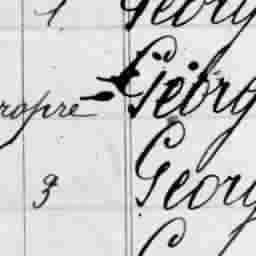 1 Georg
ropre Georg
3 Georg